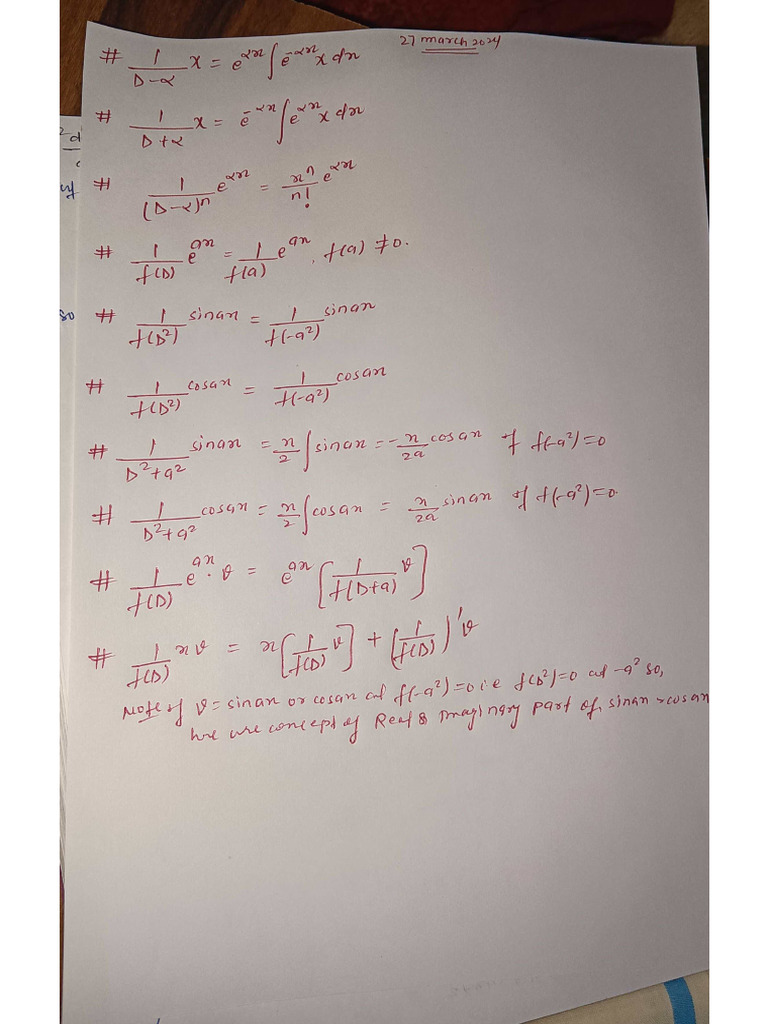 27 march 2024
# 1/(D-α) X = e^{αx} ∫ e^{-αx} X dx
# 1/(D+α) X = e^{-αx} ∫ e^{αx} X dx
# 1/(D-α)^n e^{αx} = x^n/n! e^{αx}
# 1/f(D) e^{ax} = 1/f(a) e^{ax}, f(a) ≠ 0.
# 1/f(D²) sinax = 1/f(-a²) sinax
# 1/f(D²) cosax = 1/f(-a²) cosax
# 1/(D²+a²) sinax = x/2 ∫ sinax = -x/2a cosax if f(-a²)=0
# 1/(D²+a²) cosax = x/2 ∫ cosax = x/2a sinax if f(-a²)=0.
# 1/f(D) e^{ax}. v = e^{ax} [1/f(D+a) v]
# 1/f(D) xv = x[1/f(D) v] + (1/f(D))' v
Note if v = sinax or cosax at f(-a²)=0 i.e f(D²)=0 at -a² so,
we use concept of Real & Imaginary part of, sinax cosax
so